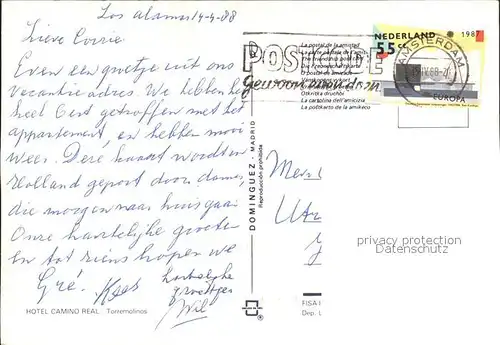 Los Alamos 14-4-'88
Lieve Corrie
Even een groetje uit ons
vacantie adres. We hebben het
heel best getroffen met het
appartement, en hebben mooi
weer. Deze kaart wordt in
Holland gepost door dames
die morgen naar huis gaan
Onze hartelijke groeten
En tot ziens hopen we
Gré. Kees
hartelijke
groetjes
Wil
HOTEL CAMINO REAL Torremolinos
DOMINGUEZ - MADRID
Reproducción prohibida
La postal de la amistad
The friendship post card
O postal de amizade
La cartolina dell'amicizia
La poŝtkarto de la amikeco
POS
Gewoon
NEDERLAND 1987
55 ct
EUROPA
AMSTERDAM
Utr
FISA I
Dep. L
privacy protection
Datenschutz